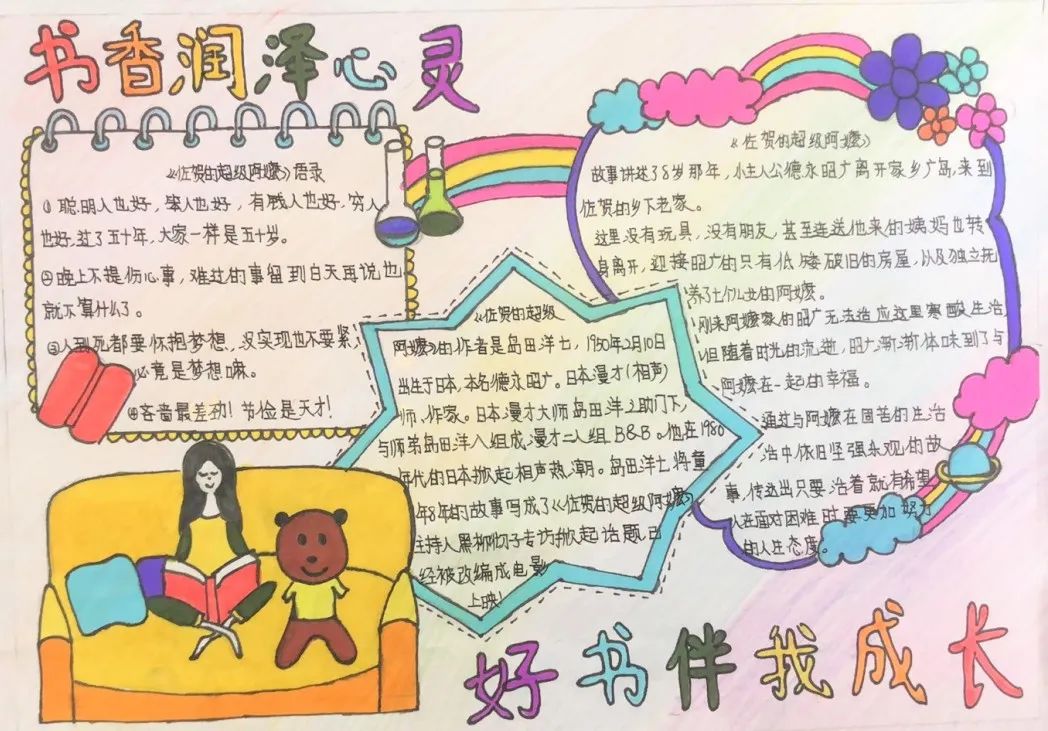 书香润泽心灵
《佐贺的超级阿嬷》语录
① 聪明人也好，笨人也好，有钱人也好，穷人
也好，过了五十年，大家一样是五十岁。
②晚上不提伤心事，难过的事留到白天再说也
就不算什么了。
③人到死都要怀抱梦想，没实现也不要紧，
必竟是梦想嘛。
④吝啬最差劲！节俭是天才！
《佐贺的超级
阿嬷》的作者是岛田洋七，1950年2月10日
出生于日本，本名德永昭广。日本漫才（相声）
师、作家。日本漫才大师岛田洋之助门下，
与师弟岛田洋八组成漫才二人组B&B。他在1980
年代的日本掀起相声热潮。岛田洋七将童
年8年的故事写成了《佐贺的超级阿嬷》
主持人黑柳彻子专访掀起话题已
经被改编成电影
上映！
《佐贺的超级阿嬷》
故事讲述了8岁那年，小主人公德永昭广离开家乡广岛，来到
佐贺的乡下老家。
这里没有玩具，没有朋友，甚至连送他来的姨妈也转
身离开，迎接昭广的只有低矮破旧的房屋，以及独立抚
养了七个儿女的阿嬷。
刚来阿嬷家的昭广无法适应这里寒酸生活，
但随着时光的流逝，昭广渐渐体味到了与
阿嬷在一起的幸福。
通过与阿嬷在困苦的生活
治中依旧坚强乐观的故
事，传达出只要治着就有希望
人在面对困难时要更加努力
的人生态度。
好书伴我成长